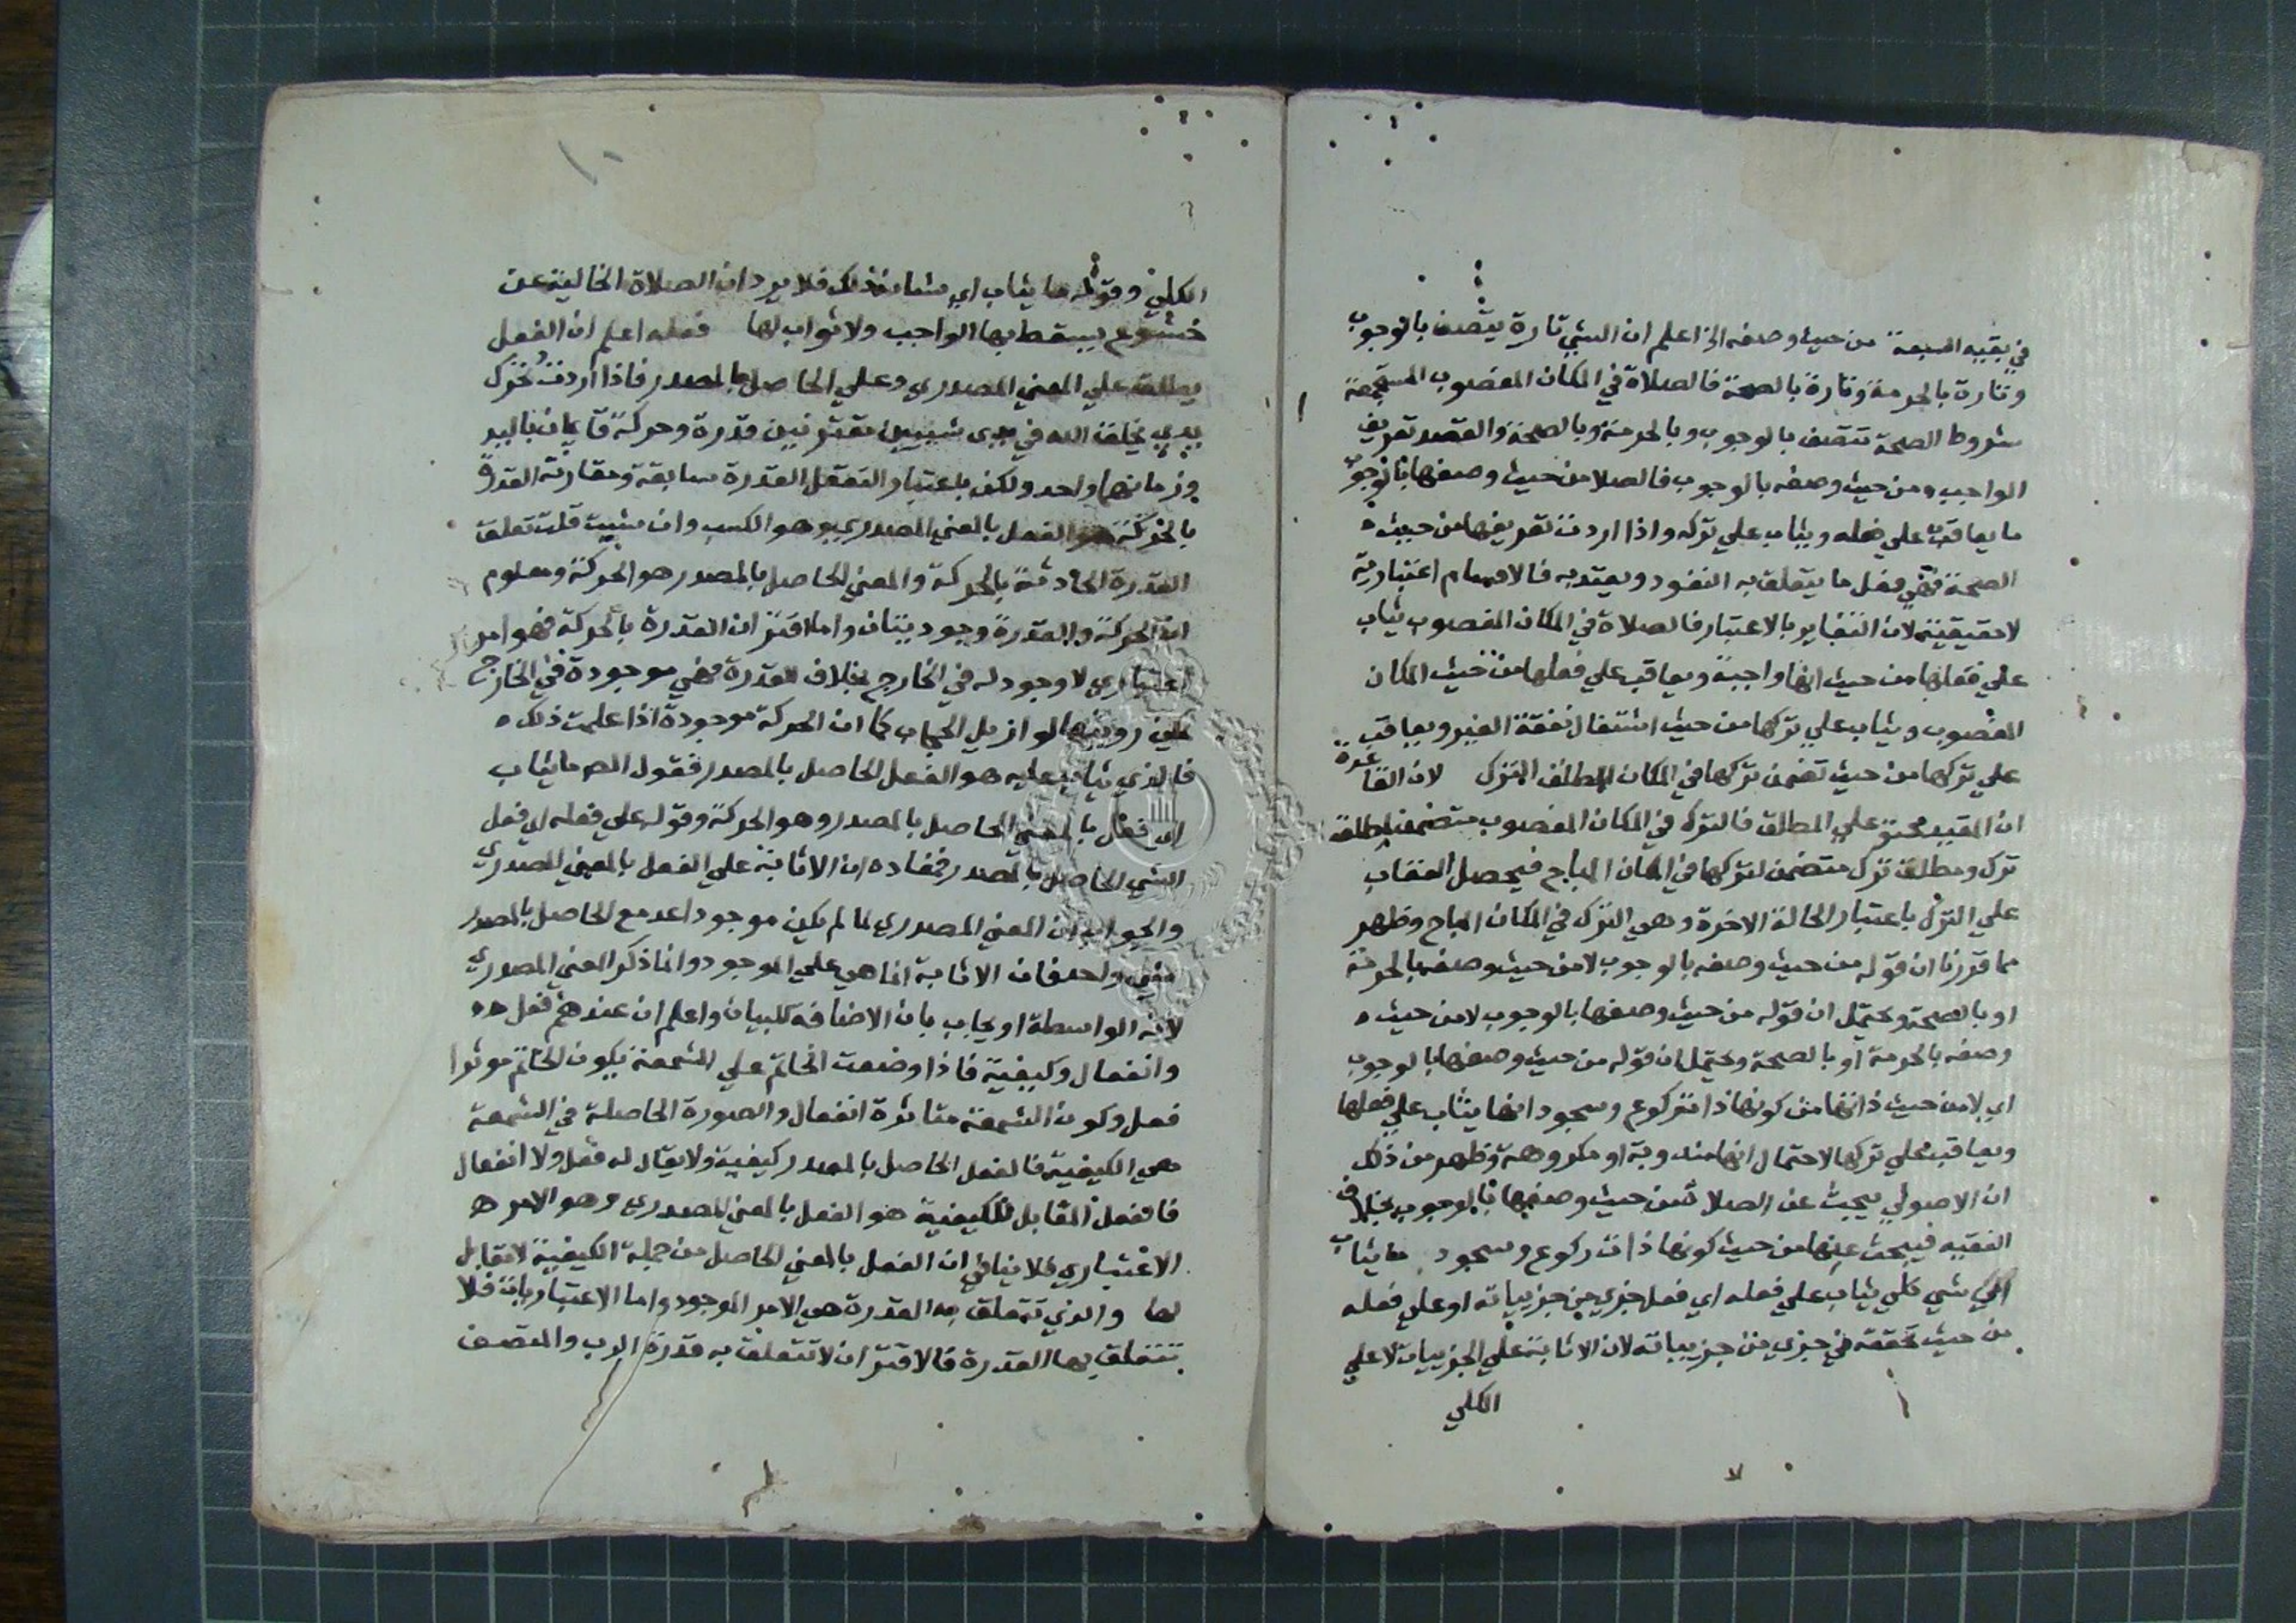 في بقيه السبعة من حيث وصفه الخ اعلم ان الشيي تارة يتصف بالوجوب
وتارة بالحرمة وتارة بالصحة فالصلاة في المكان المغصوب المستجمعة
شروط الصحة تتصف بالوجوب وبالحرمة وبالصحة والقصد تعريف
الواجب ومن حيث وصفه بالوجوب فالصلا من حيث وصفها بالوجوب
ما يعاقب علي فعله ويثاب علي تركه واذا اردت تعريفها من حيث
الصحة فهي فعل ما يتعلق به النفود ويعتد به فالاقسام اعتبارية
لا حقيقية لان التغاير بالاعتبار فالصلاة في المكان المغصوب يثاب
علي فعلها من حيث انها واجبة ويعاقب علي فعلها من حيث المكان
المغصوب ويثاب علي تركها من حيث اشتغال نفقة الغير ويعاقب
علي تركها من حيث تضمن تركها في المكان المطلق الترك لان القاعدة
ان المقيد محتو علي المطلق فالترك في المكان المغصوب متضمن لمطلق
ترك ومطلق ترك متضمن لتركها في المكان المباح فيحصل العقاب
علي الترك باعتبار الحالة الاخرة وهي الترك في المكان المباح وظهر
مما قررنا ان قوله من حيث وصفه بالوجوب لا من حيث وصفه بالحرمة
او بالصحة ويحتمل ان قوله من حيث وصفها بالوجوب لا من حيث
وصفه بالحرمة او بالصحة ويحتمل ان قوله من حيث وصفها بالوجوب
اي لا من حيث ذاتها من كونها ذات ركوع وسجود انها يثاب علي فعلها
ويعاقب علي تركها لاحتمال انها مندوبة او مكروهة وظهر من ذلك
ان الاصولي يبحث عن الصلاة من حيث وصفها بالوجوب بخلاف
الفقيه فيبحث عنها من حيث كونها ذات ركوع وسجود ما يثاب
اي شي كلي يثاب علي فعله اي فعل جزي من جزيياته او علي فعله
من حيث تحققه في جزي من جزيياته لان الاثابة علي الجزييات لا علي
الكلي
الكلي وقوله ما يثاب اي شانه ذلك فلا يرد ان الصلاة الخالية عن
خشوع يسقط بها الواجب ولا ثواب لها فعله اعلم ان الفعل
يطلق علي المعني المصدري وعلي الحاصل بالمصدر فاذا اردت تحرك
يدي يخلق الله في يدى شييين مقترنين قدرة وحركة قايمان باليد
وزمانهما واحد ولكن باعتبار التعقل القدرة سابقة ومقارنة القدرة
بالحركة هو الفعل بالمعني المصدري وهو الكسب وان شييت قلت تعلق
القدرة الحادثة بالحركة والمعني الحاصل بالمصدر هو الحركة ومعلوم
ان الحركة والقدرة وجوديتان واما اقتران القدرة بالحركة فهو امر
اعتباري لا وجود له في الخارج بخلاف القدرة فهي موجودة في الخارج
يمكن رويتها لو ازيل الحجاب كما ان الحركة موجودة اذا علمت ذلك
فالذي يثاب عليه هو الفعل الحاصل بالمصدر فقول المص ما يثاب
اي فعل بالمعني الحاصل بالمصدر وهو الحركة وقوله علي فعله اي فعل
الشي الحاصل بالمصدر فمفاده ان الاثابة علي الفعل بالمعني المصدري
والجواب ان المعني المصدري لما لم يكن موجود اعد مع الحاصل بالمصدر
شي واحد فان الاثابة انما هي علي الموجود وانما ذكر المعني المصدري
لانه الواسطة او يجاب بان الاضافة للبيان واعلم ان عندهم فعل
وانفعال وكيفية فاذا وضعت الخاتم علي الشمعة يكون الخاتم موثرا
فعل وكون الشمعة متاثرة انفعال والصورة الحاصلة في الشمعة
هي الكيفية فالفعل الحاصل بالمصدر كيفية ولا يقال له فعل ولا انفعال
فالفعل المقابل للكيفية هو الفعل بالمعني المصدري وهو الامر
الاعتباري فلا ينافي ان الفعل بالمعني الحاصل من جملة الكيفية لا مقابل
لها والذي تتعلق به القدرة هي الامر الموجود واما الاعتباريات فلا
تتعلق بها القدرة فالاقتران لا تتعلق به قدرة الرب والمتصف